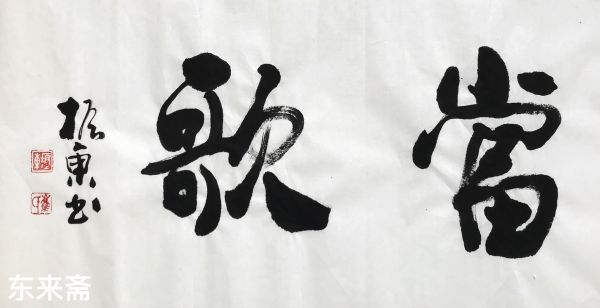 當歌
振東书
东来斋